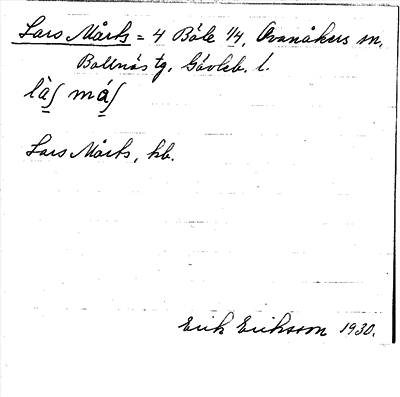 Lars Mårts = 4 Böle 1/4, Ovanåkers sn,
Bollnäs tg, Gävleb. l.
là∫ má∫
Lars Mårts, kb.
Erik Eriksson 1930.